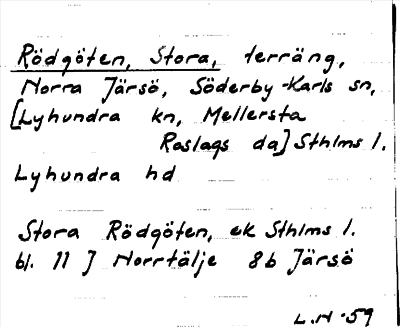 Rödgöten, Stora, terräng,
Norra Järsö, Söderby-Karls sn,
[Lyhundra kn, Mellersta
Roslags da] Sthlms l.
Lyhundra hd
Stora Rödgöten, ek Sthlms l.
bl. 11 J Norrtälje 8b Järsö
L.H -59